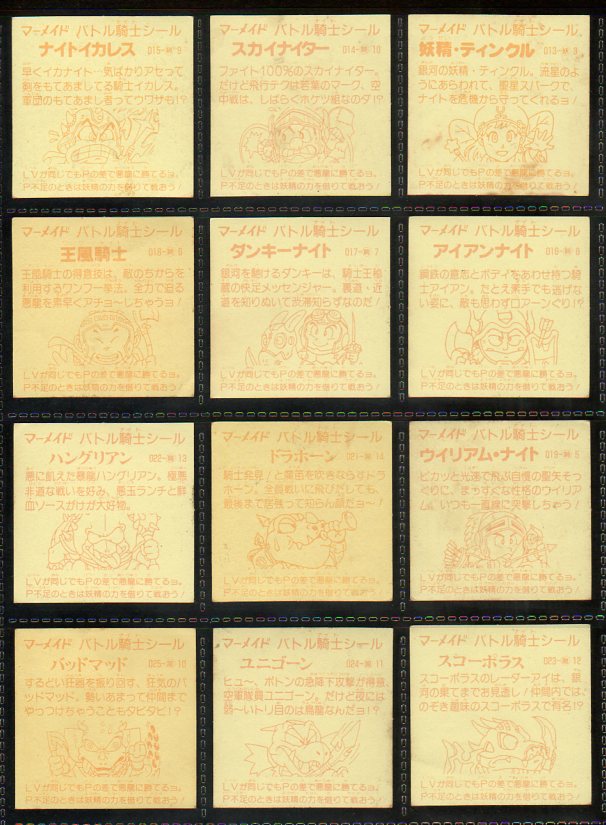 マーメイド バトル騎士シール
ナイトイカレス 015-騎 9
早くイカナイト…気ばかりアセって
剣をもてあましてる騎士イカレス。
軍団のもてあまし者ってウワサも!?
LVが同じでもPの差で悪魔に勝てるヨ。
P不足のときは妖精の力を借りて戦おう!
マーメイド バトル騎士シール
スカイナイター 014-騎 10
ファイト100%のスカイナイター。
だけど飛行テクは若葉のマーク、空
中戦は、しばらくホゲツ組なのダ!?
LVが同じでもPの差で悪魔に勝てるヨ。
P不足のときは妖精の力を借りて戦おう!
マーメイド バトル騎士シール
妖精・ティンクル 013-妖
銀河の妖精・ティンクル。流星のよ
うにあらわれて、聖星スパークで、
ナイトを危機から守ってくれるヨ!
LVが同じでもPの差で悪魔に勝てるヨ。
P不足のときは妖精の力を借りて戦おう!
マーメイド バトル騎士シール
王風騎士 018-騎 6
王風騎士の得意技は、敵のちからを
利用するワンフー拳法。全力で迫る
悪魔を素早くアチョ〜しちゃうヨ!
LVが同じでもPの差で悪魔に勝てるヨ。
P不足のときは妖精の力を借りて戦おう!
マーメイド バトル騎士シール
ダンキーナイト 017-騎 7
銀河を馳けるダンキーは、騎士王秘
蔵の快足メッセンジャー。裏道・近
道を知りぬいて渋滞知らずなのだ!
LVが同じでもPの差で悪魔に勝てるヨ。
P不足のときは妖精の力を借りて戦おう!
マーメイド バトル騎士シール
アイアンナイト 016-騎 8
鋼鉄の意志とボディをあわせ持つ騎
士アイアン。たとえ素手でも逃げな
い姿に、敵も思わずロアーンぐり!?
LVが同じでもPの差で悪魔に勝てるヨ。
P不足のときは妖精の力を借りて戦おう!
マーメイド バトル騎士シール
ハングリアン 022-魔 13
悪に飢えた暴龍ハングリアン。極悪
非道な戦いを好み、悪玉ランチと鮮
血ソースがけが大好物。
LVが同じでもPの差で悪魔に勝てるヨ。
P不足のときは妖精の力を借りて戦おう!
マーメイド バトル騎士シール
ドラホーン 021-魔 14
騎士発見!と葉笛を吹きならすドラ
ホーン。全員戦いに飛びだしても、
最後まで居残って知らん顔だヨ〜!
LVが同じでもPの差で悪魔に勝てるヨ。
P不足のときは妖精の力を借りて戦おう!
マーメイド バトル騎士シール
ウイリアム・ナイト 019-騎 5
ピカッと光速で飛ぶ自慢の聖矢そっ
くりに、まっすぐな性格のウイリア
ム。いつも一直線に突撃しちゃう!
LVが同じでもPの差で悪魔に勝てるヨ。
P不足のときは妖精の力を借りて戦おう!
マーメイド バトル騎士シール
バッドマッド 025-魔 10
するどい狂器を振り回す、狂気のバ
ッドマッド。勢いあまって仲間まで
やっつけちゃうこともタビタビ!?
LVが同じでもPの差で悪魔に勝てるヨ。
P不足のときは妖精の力を借りて戦おう!
マーメイド バトル騎士シール
ユニゴーン 024-魔 11
ヒュ〜、ボトンの急降下攻撃が得意、
空軍隊員ユニゴーン。だけど夜には
弱〜いトリ目のは鳥龍なんだヨ!?
LVが同じでもPの差で悪魔に勝てるヨ。
P不足のときは妖精の力を借りて戦おう!
マーメイド バトル騎士シール
スコーポラス 023-魔 12
スコーポラスのレーダーアイは、銀
河の果てまでお見透し!仲間内では、
のぞき趣味のスコーポラスで有名!?
LVが同じでもPの差で悪魔に勝てるヨ。
P不足のときは妖精の力を借りて戦おう!